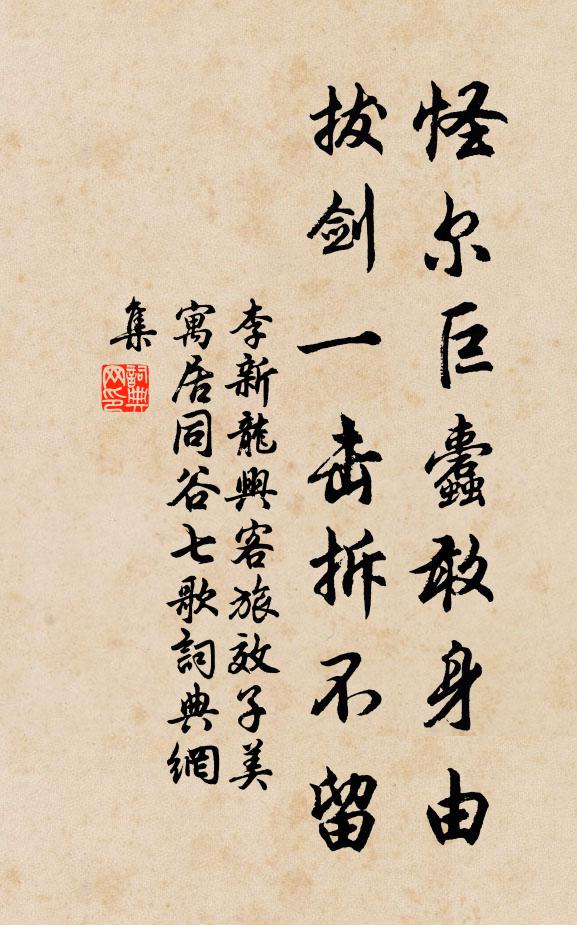 怪尔巨蠹敢身由
拔剑一击拆不留
李新龍興客旅效子美
寓居同谷七歌詞典網
集
詞典
网印